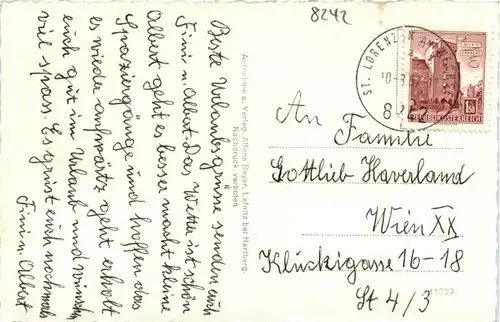 8242
Beste Urlaubsgrüsse senden euch
Fini u. Albert. Das Wetter ist schön
Albert geht es besser macht kleine
Spaziergänge und hoffen das
es wieder aufwärtz geht erholt
euch gut im Urlaub und wünschen
viel spass. Es grüst euch nochmals
Fini u. Albert
Aufnahme u. Verlag: Alfons Bayer, Lafnitz bei Hartberg.
Nachdruck verboten
ST. LORENZEN AM WECHSEL
1.50
REPUBLIK ÖSTERREICH
An Familie
Gottlieb Haverland
Wien XX
Kluckigasse 16-18
St 4/3